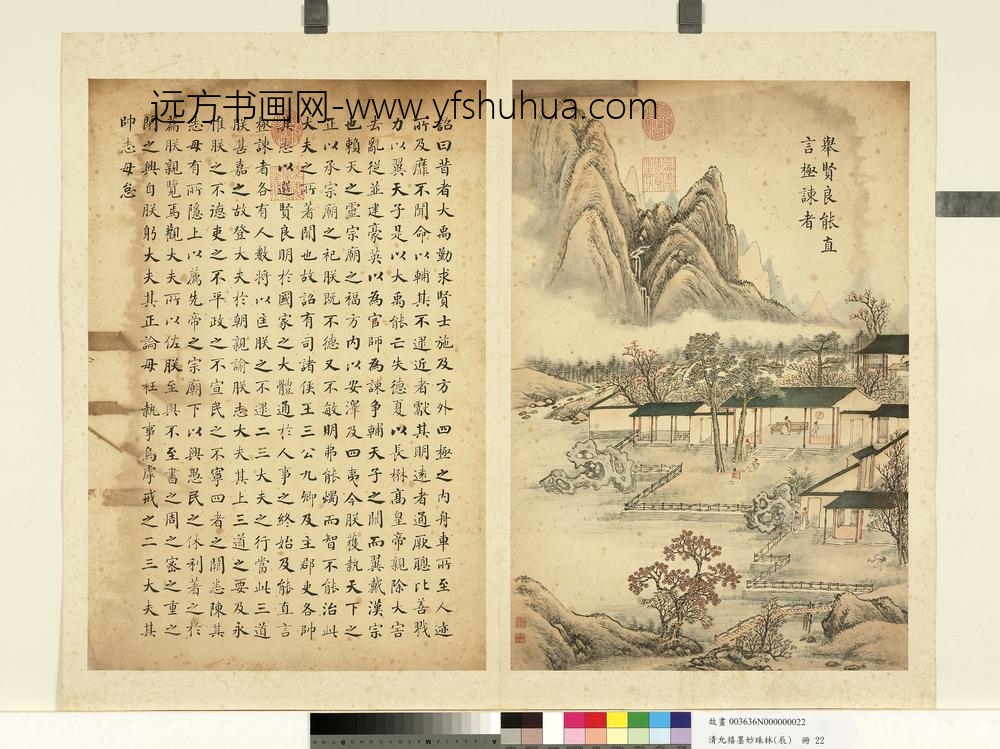 远方书画网-www.yfshuhua.com
舉賢良能直
言極諫者
詔曰昔者大禹勤求賢士施及方外四極之內舟車所至人迹
所及靡不聞命以輔其不逮近者獻其明遠者通厥聰比善戮
力以翼天子是以大禹能亡失德夏以長楙高皇帝親除大害
去亂從並建豪英以為官師為諫爭輔天子之闕而翼戴漢宗
也賴天之靈宗廟之福方內以安澤及四夷今朕獲執天下之
正以承宗廟之祀朕既不德又不敏明弗能燭而智不能治此
大夫之所著聞也故詔有司諸侯王三公九卿及主郡吏各帥
其志以選賢良明於國家之大體通於人事之終始及能直言
極諫者各有人數將以匡朕之不逮二三大夫之行當此三道
朕甚嘉之故登大夫於朝親諭朕志大夫其上三道之要及永
惟朕之不德吏之不平政之不宣民之不寧四者之闕悉陳其
志毋有所隱上以薦先帝之宗廟下以興愚民之休利著之於
篇朕親覽焉觀大夫所以佐朕至與不至書之周之密之重之
閉之興自朕躬大夫其正論毋枉執事烏虖戒之二三大夫其
帥志毋怠
故畫 003636N000000022
清允禧墨妙珠林(辰) 冊 22